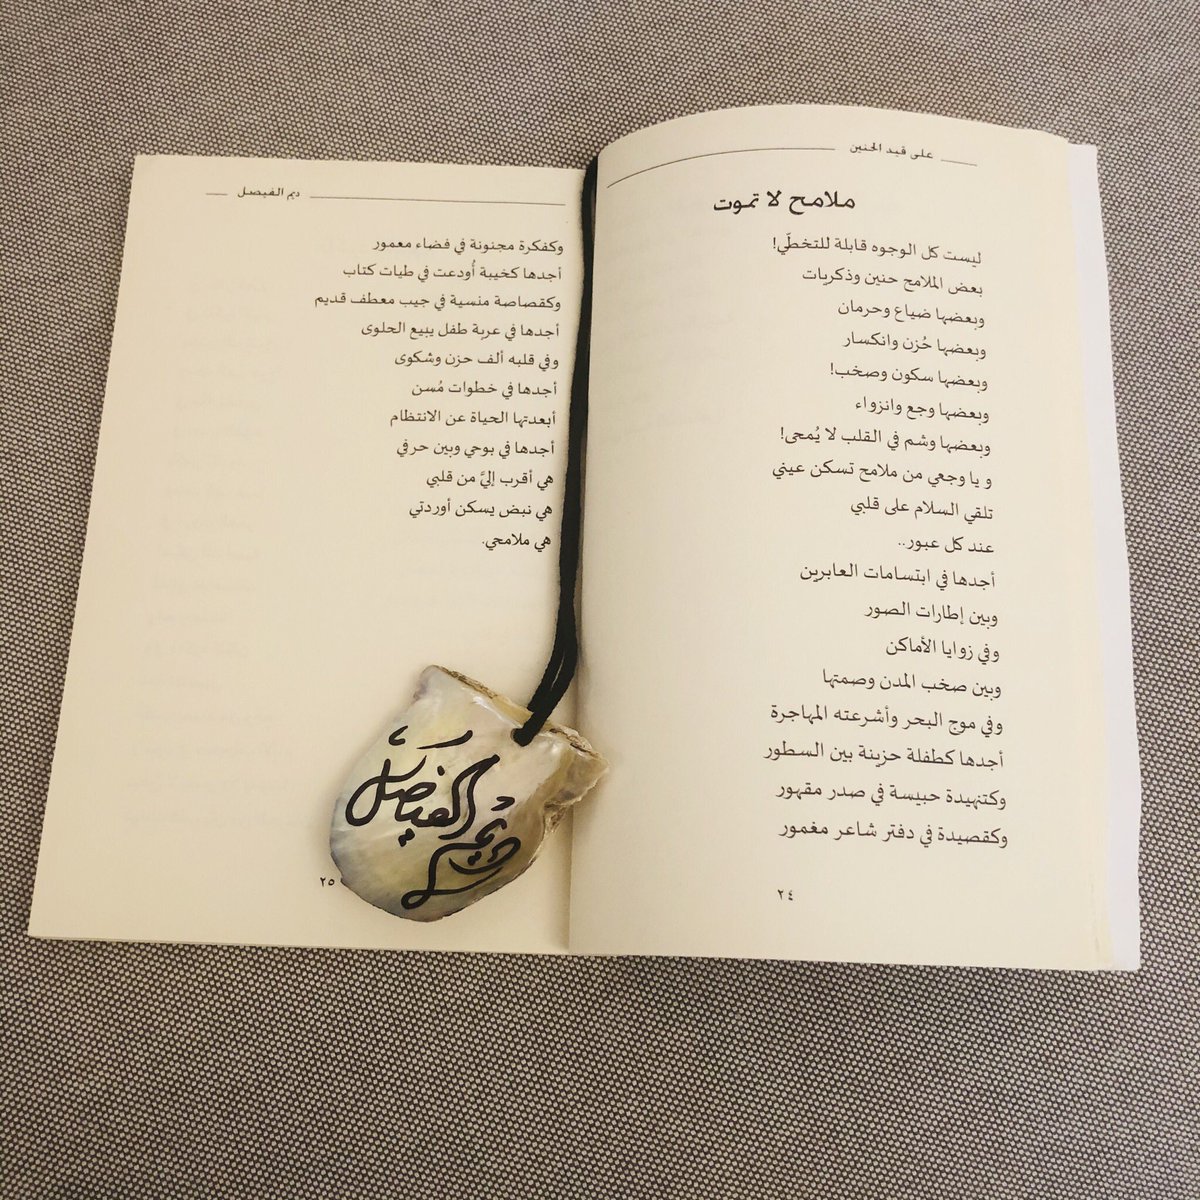 على قيد الحنين
ملامح لا تموت
ليست كل الوجوه قابلة للتخطّي!
بعض الملامح حنين وذكريات
وبعضها ضياع وحرمان
وبعضها حُزن وانكسار
وبعضها سكون وصخب!
وبعضها وجع وانزواء
وبعضها وشم في القلب لا يُمحى!
و يا وجعي من ملامح تسكن عيني
تلقي السلام على قلبي
عند كل عبور..
أجدها في ابتسامات العابرين
وبين إطارات الصور
وفي زوايا الأماكن
وبين صخب المدن وصمتها
وفي موج البحر وأشرعته المهاجرة
أجدها كطفلة حزينة بين السطور
وكتنهيدة حبيسة في صدر مقهور
وكقصيدة في دفتر شاعر مغمور
٢٤
ديم الفيصل
وكفكرة مجنونة في فضاء معمور
أجدها كخيبة أُودعت في طيات كتاب
وكقصاصة منسية في جيب معطف قديم
أجدها في عربة طفل يبيع الحلوى
وفي قلبه ألف حزن وشكوى
أجدها في خطوات مُسن
أبعدتها الحياة عن الانتظام
أجدها في بوحي وبين حرفي
هي أقرب إليَّ من قلبي
هي نبض يسكن أوردتي
هي ملامحي.
ديم الفيصل
٢٥